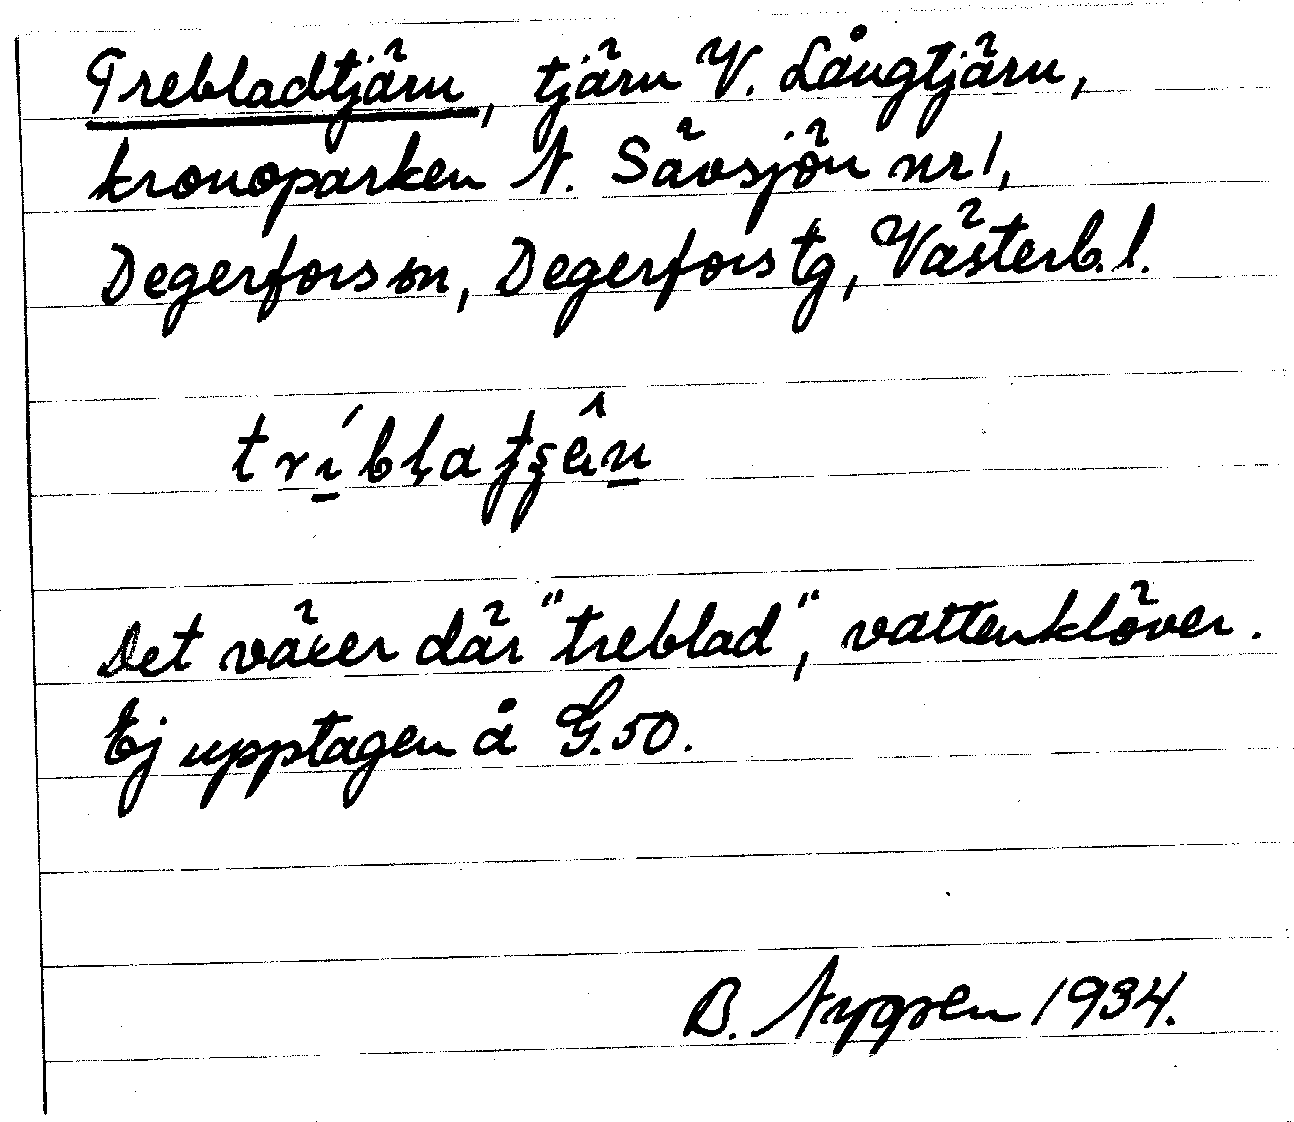 Trebladtjärn, tjärn V. Långtjärn,
kronoparken N. Sävsjön nr 1,
Degerfors sn, Degerfors tg, Västerb. l.
Det växer där "treblad", vattenklöver.
Ej upptagen å G.50.
B. Nygren 1934.